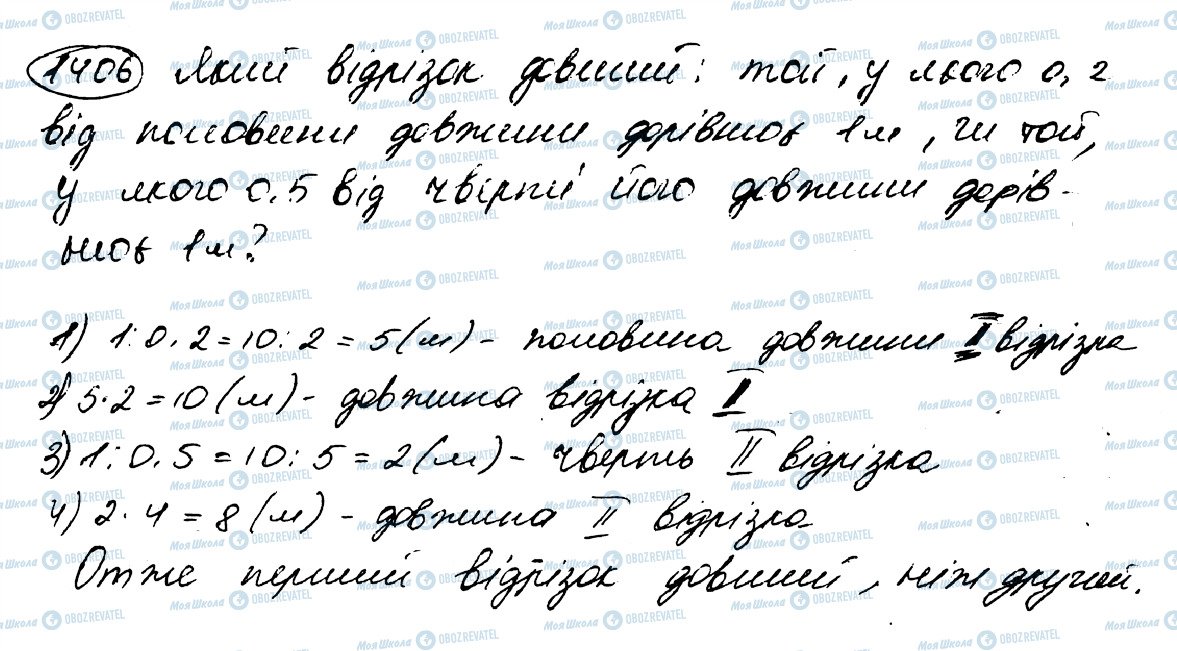 1406 Який відрізок довший: той, у якого 0,2
від половини довжини дорівнює 1 м, чи той,
у якого 0,5 від чверті його довжини дорів-
нює 1 м?
1) 1 : 0,2 = 10 : 2 = 5 (м) - половина довжини I відрізка
2) 5 · 2 = 10 (м) - довжина відрізка I
3) 1 : 0,5 = 10 : 5 = 2 (м) - чверть II відрізка
4) 2 · 4 = 8 (м) - довжина II відрізка
Отже перший відрізок довший, ніж другий.
МояШкола OBOZREVATEL